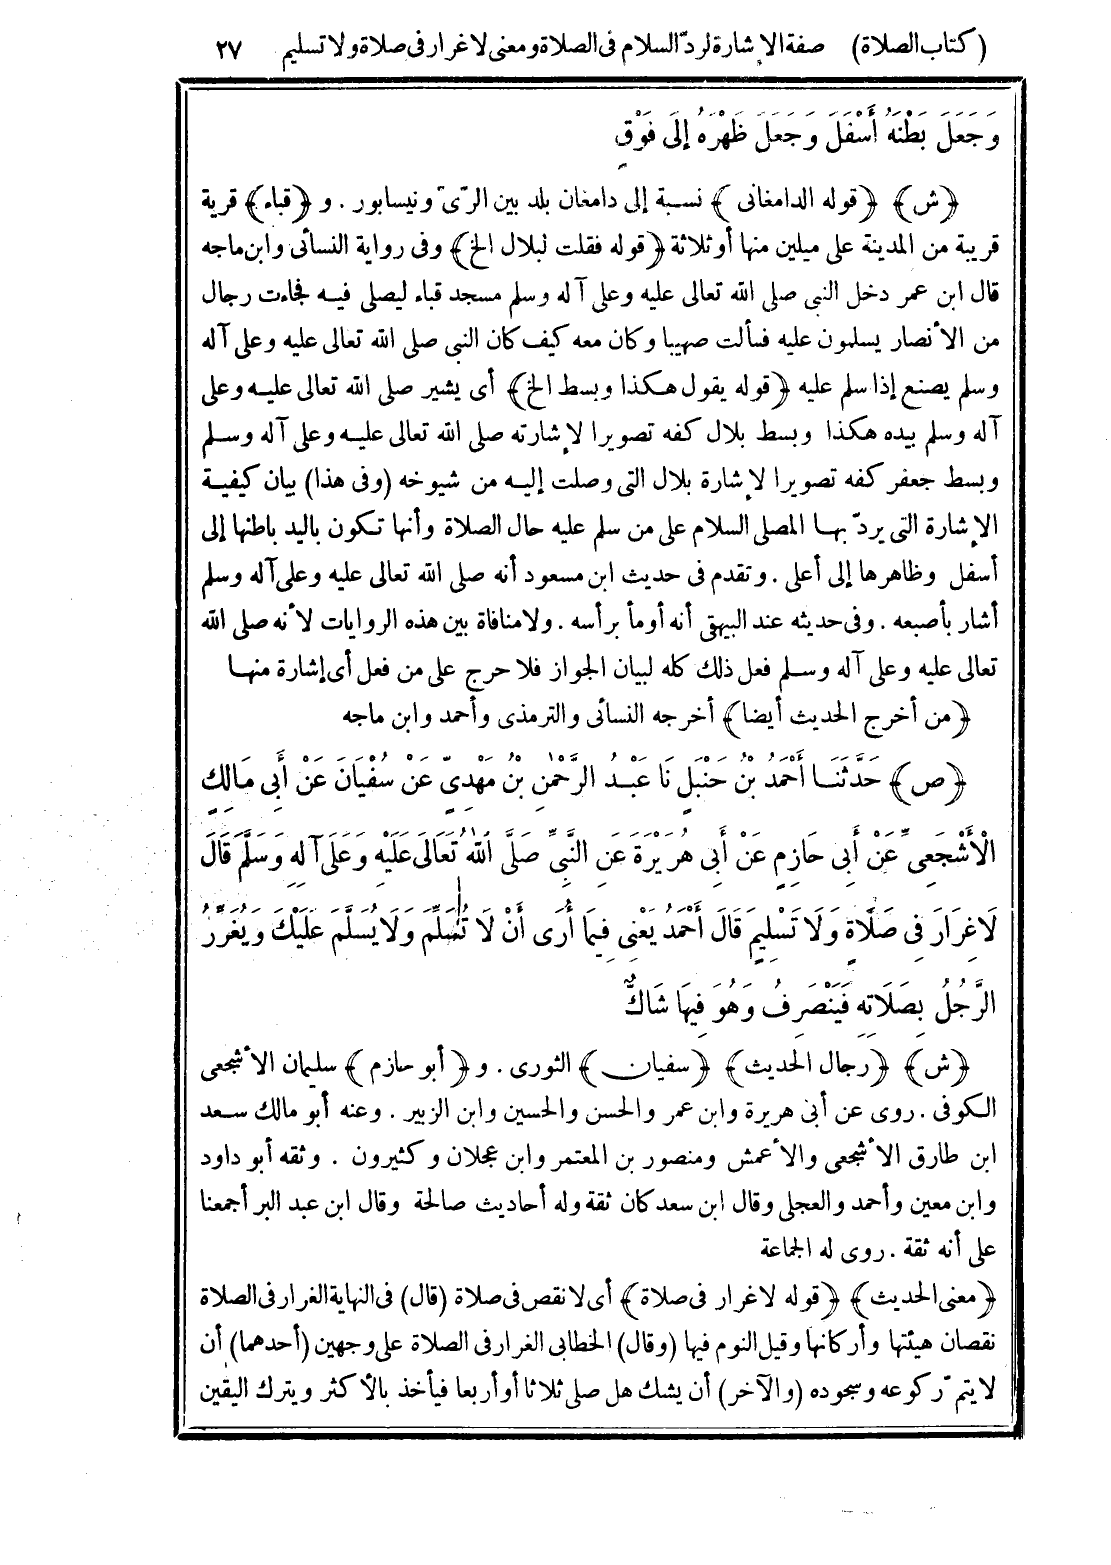 (كتاب الصلاة) صفة الإشارة لرد السلام فى الصلاة ومعنى لا غرار فى صلاة ولا تسليم ٢٧
وَجَعَلَ بَطْنَهُ أَسْفَلَ وَجَعَلَ ظَهْرَهُ إِلَى فَوْقٍ
﴿ش﴾ ﴿قوله الدامغانى﴾ نسبة إلى دامغان بلد بين الرىّ ونيسابور . و ﴿قباء﴾ قرية
قريبة من المدينة على ميلين منها أو ثلاثة ﴿قوله فقلت لبلال الخ﴾ وفى رواية النسائى وابن ماجه
قال ابن عمر دخل النبى صلى الله تعالى عليه وعلى آله وسلم مسجد قباء ليصلى فيه فجاءت رجال
من الأنصار يسلمون عليه فسألت صهيبا وكان معه كيف كان النبى صلى الله تعالى عليه وعلى آله
وسلم يصنع إذا سلم عليه ﴿قوله يقول هكذا وبسط الخ﴾ أى يشير صلى الله تعالى عليه وعلى
آله وسلم بيده هكذا وبسط بلال كفه تصويرا لإشارته صلى الله تعالى عليه وعلى آله وسلم
وبسط جعفر كفه تصويرا لإشارة بلال التى وصلت إليه من شيوخه (وفى هذا) بيان كيفية
الإشارة التى يردّ بها المصلى السلام على من سلم عليه حال الصلاة وأنها تكون باليد باطنها إلى
أسفل وظاهرها إلى أعلى . وتقدم فى حديث ابن مسعود أنه صلى الله تعالى عليه وعلى آله وسلم
أشار بأصبعه . وفى حديثه عند البيهقى أنه أومأ برأسه . ولا منافاة بين هذه الروايات لأنه صلى الله
تعالى عليه وعلى آله وسلم فعل ذلك كله لبيان الجواز فلا حرج على من فعل أى إشارة منها
﴿من أخرج الحديث أيضا﴾ أخرجه النسائى والترمذى وأحمد وابن ماجه
﴿ص﴾ حَدَّثَنَا أَحْمَدُ بْنُ حَنْبَلٍ نَا عَبْدُ الرَّحْمٰنِ بْنُ مَهْدِىٍّ عَنْ سُفْيَانَ عَنْ أَبِى مَالِكٍ
الْأَشْجَعِىِّ عَنْ أَبِى حَازِمٍ عَنْ أَبِى هُرَيْرَةَ عَنِ النَّبِىِّ صَلَّى اللهُ تَعَالَى عَلَيْهِ وَعَلَى آلِهِ وَسَلَّمَ قَالَ
لَا غِرَارَ فِى صَلَاةٍ وَلَا تَسْلِيمٍ قَالَ أَحْمَدُ يَعْنِى فِيمَا أُرَى أَنْ لَا تُسَلِّمَ وَلَا يُسَلَّمَ عَلَيْكَ وَيُغَرِّرُ
الرَّجُلُ بِصَلَاتِهِ فَيَنْصَرِفُ وَهُوَ فِيهَا شَاكٌّ
﴿ش﴾ ﴿رجال الحديث﴾ ﴿سفيان﴾ الثورى . و ﴿أبو حازم﴾ سليمان الأشجعى
الكوفى . روى عن أبى هريرة وابن عمر والحسن والحسين وابن الزبير . وعنه أبو مالك سعد
ابن طارق الأشجعى والأعمش ومنصور بن المعتمر وابن عجلان وكثيرون . وثقه أبو داود
وابن معين وأحمد والعجلى وقال ابن سعد كان ثقة وله أحاديث صالحة وقال ابن عبد البر أجمعنا
على أنه ثقة . روى له الجماعة
﴿معنى الحديث﴾ ﴿قوله لا غرار فى صلاة﴾ أى لا نقص فى صلاة (قال) فى النهاية الغرار فى الصلاة
نقصان هيئتها وأركانها وقيل النوم فيها (وقال) الخطابى الغرار فى الصلاة على وجهين (أحدهما) أن
لا يتمّ ركوعه وسجوده (والآخر) أن يشك هل صلى ثلاثا أو أربعا فيأخذ بالأكثر ويترك اليقين